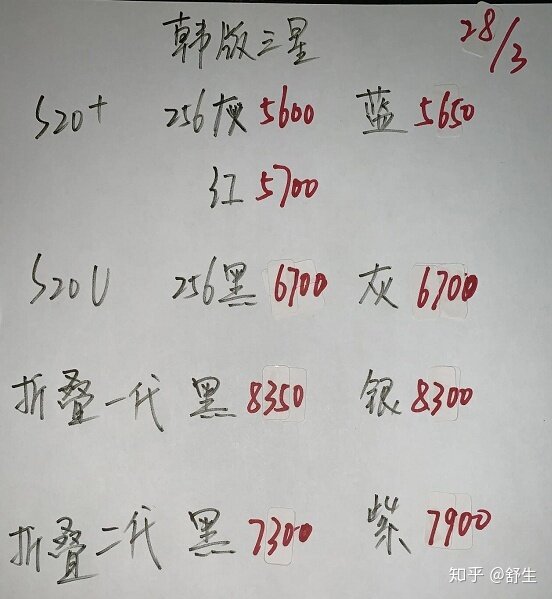 韩版三星 28/3
S20+ 256灰 5600 蓝 5650
红 5700
S20U 256黑 6700 灰 6700
折叠一代 黑 8350 银 8300
折叠二代 黑 7300 紫 7900
知乎 @舒生